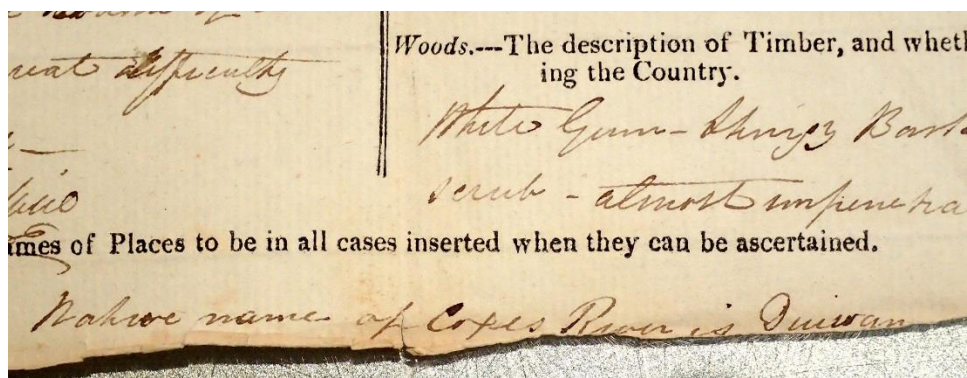 great difficulty
Woods.---The description of Timber, and wheth
ing the Country.
White Gum - Stringy Bark
scrub - almost impenetra
ames of Places to be in all cases inserted when they can be ascertained.
Native name of Coxes River is